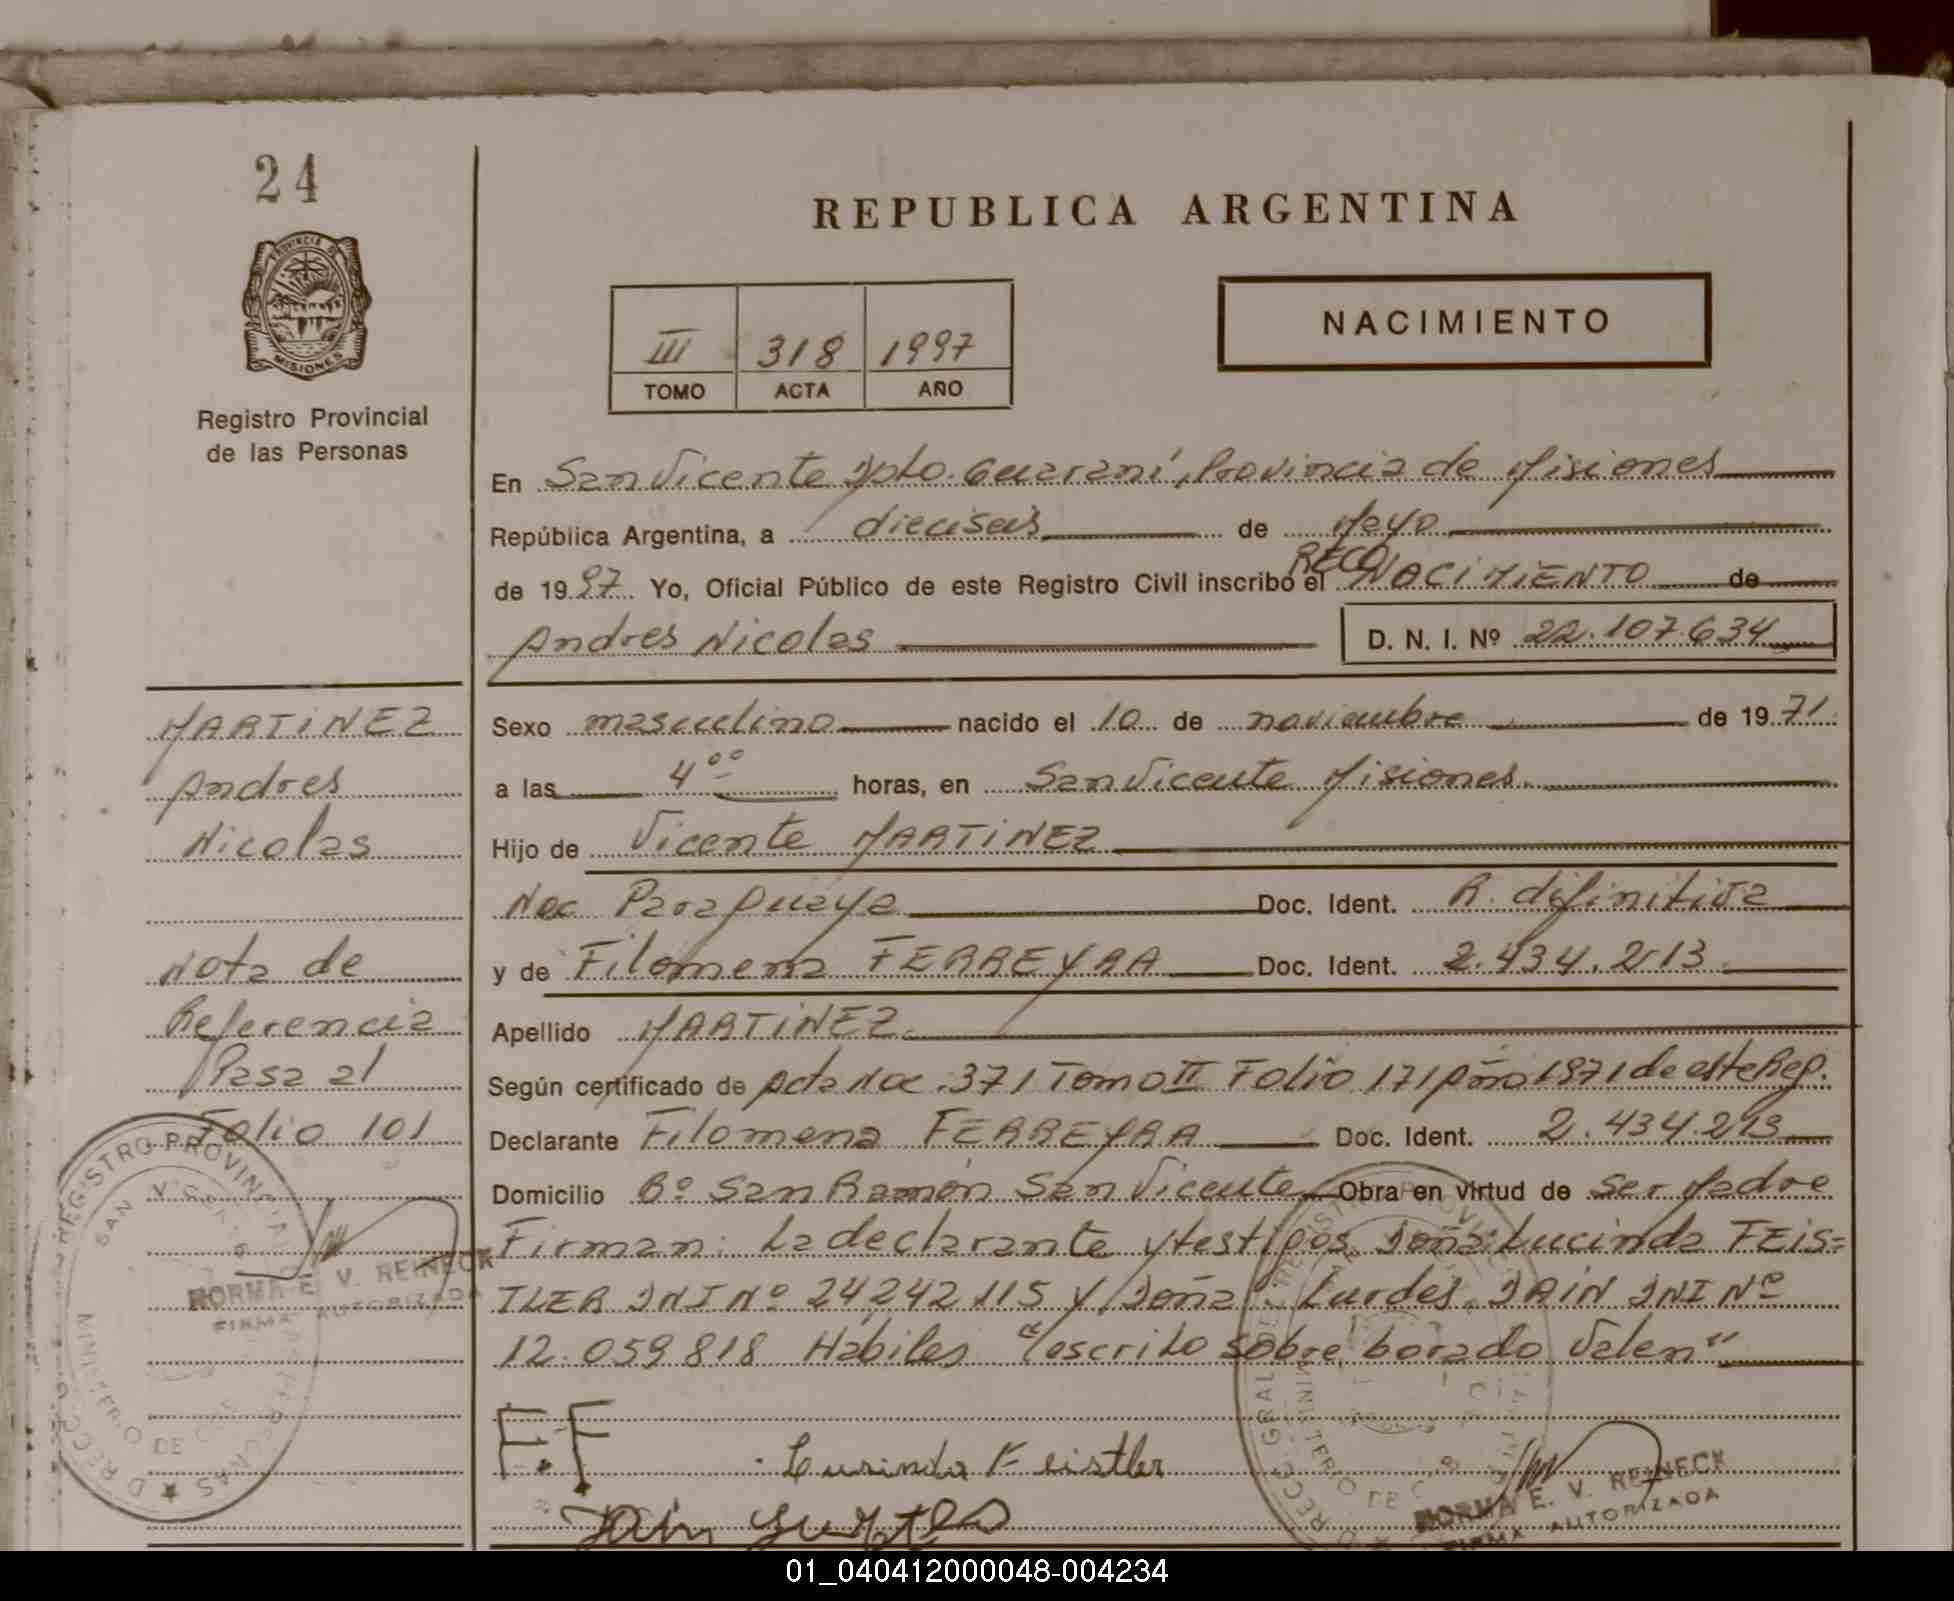 24
PROVINCIA DE
MISIONES
Registro Provincial
de las Personas
REPUBLICA ARGENTINA
III 318 1997
TOMO ACTA AÑO
NACIMIENTO
En San Vicente Dpto. Guaraní, Provincia de Misiones
República Argentina, a dieciseis de Mayo
de 1997 Yo, Oficial Público de este Registro Civil inscribo el RECONOCIMIENTO de
Andres Nicolas D. N. I. Nº 22.107.634
Sexo masculino nacido el 10 de noviembre de 1971
a las 4°° horas, en San Vicente Misiones.
Hijo de Vicente MARTINEZ
Nac Paraguaya Doc. Ident. R. difinitiva
y de Filomena FERREYRA Doc. Ident. 2.434.213
Apellido MARTINEZ
Según certificado de Acta Nac. 371 Tomo II Folio 171 Año 1971 de este Reg.
Declarante Filomena FERREYRA Doc. Ident. 2.434.213
Domicilio Bº San Ramón San Vicente Obra en virtud de ser Madre
Firman: La declarante y testigos Doña: Lucinda FEIS=
TLER DNI Nº 24242115 y Doña Lurdes DAIN DNI Nº
12.059818 Hábiles "escrito sobre borado Valen"
E.F
Lusinda Feistler
Dain Lurdes
MARTINEZ
Andres
Nicolas
Nota de
Referencia
Pasa al
Folio 101
REGISTRO PROVINCIAL
SAN VICENTE
NORMA E. V. REINECK
FIRMA AUTORIZADA
NORMA E. V. REINECK
FIRMA AUTORIZADA
01_040412000048-004234